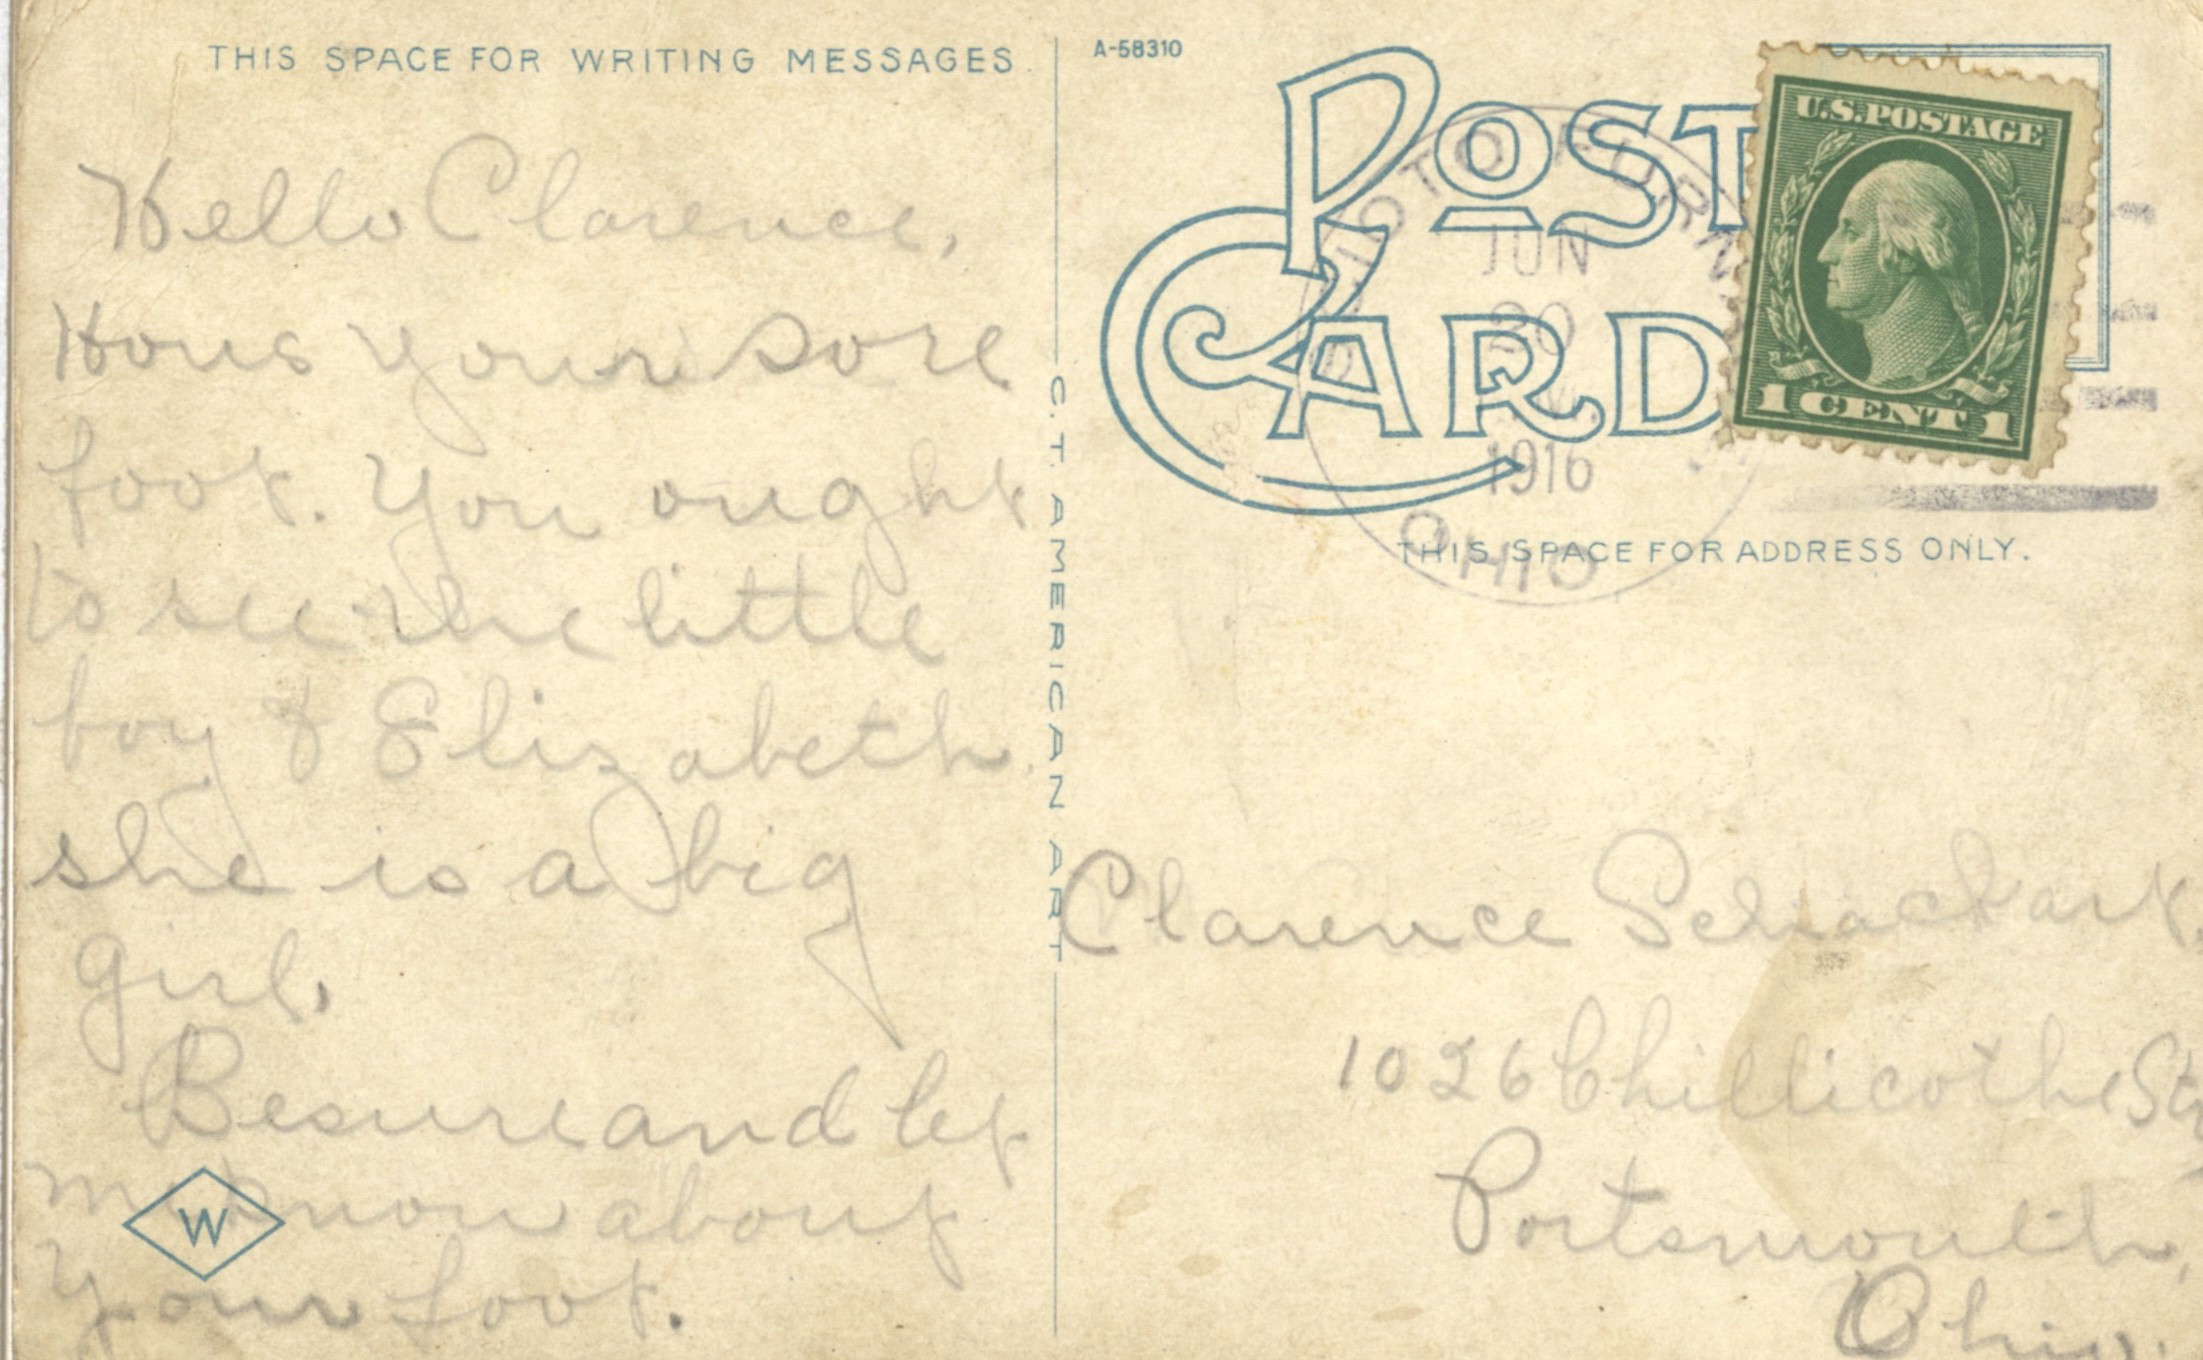 THIS SPACE FOR WRITING MESSAGES
Hello Clarence,
Hows your sore
foot. You ought
to see the little
boy & Elizabeth
she is a big
girl.
Be sure and let
me know about
your foot.
W
C. T. AMERICAN ART
A-58310
POST
CARD
U.S. POSTAGE
1 CENT 1
JUN
30
1916
OHIO
THIS SPACE FOR ADDRESS ONLY.
Clarence
1026 Chillicothe St
Portsmouth,
Ohio.